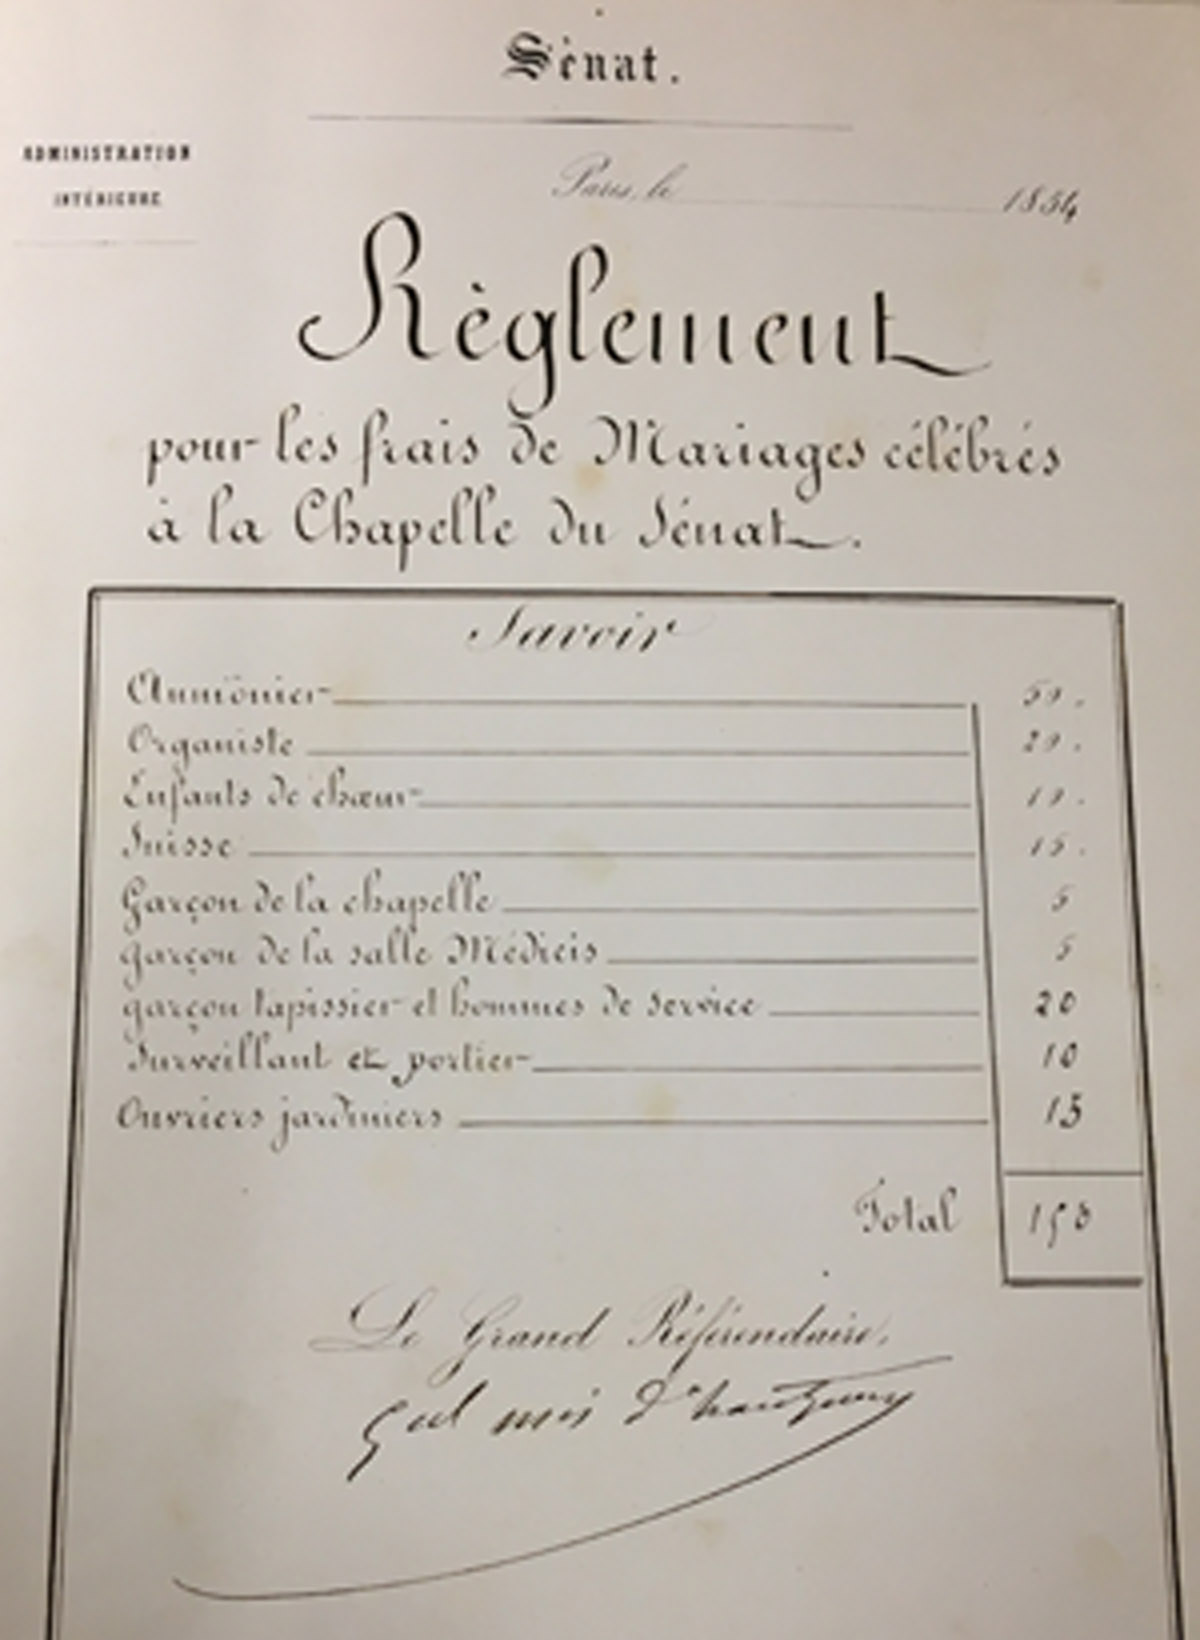 Sénat.
ADMINISTRATION
INTÉRIEURE
Paris, le 1854
Règlement
pour les frais de Mariages célébrés
à la Chapelle du Sénat.
Savoir
Aumônier 50.
Organiste 20.
Enfants de chœur 10.
Suisse 15.
Garçon de la chapelle 5
garçon de la salle Médicis 5
garçon tapissier et hommes de service 20
Surveillant et portier 10
Ouvriers jardiniers 15
Total 150
Le Grand Référendaire,
Gal mis d'hautpoul